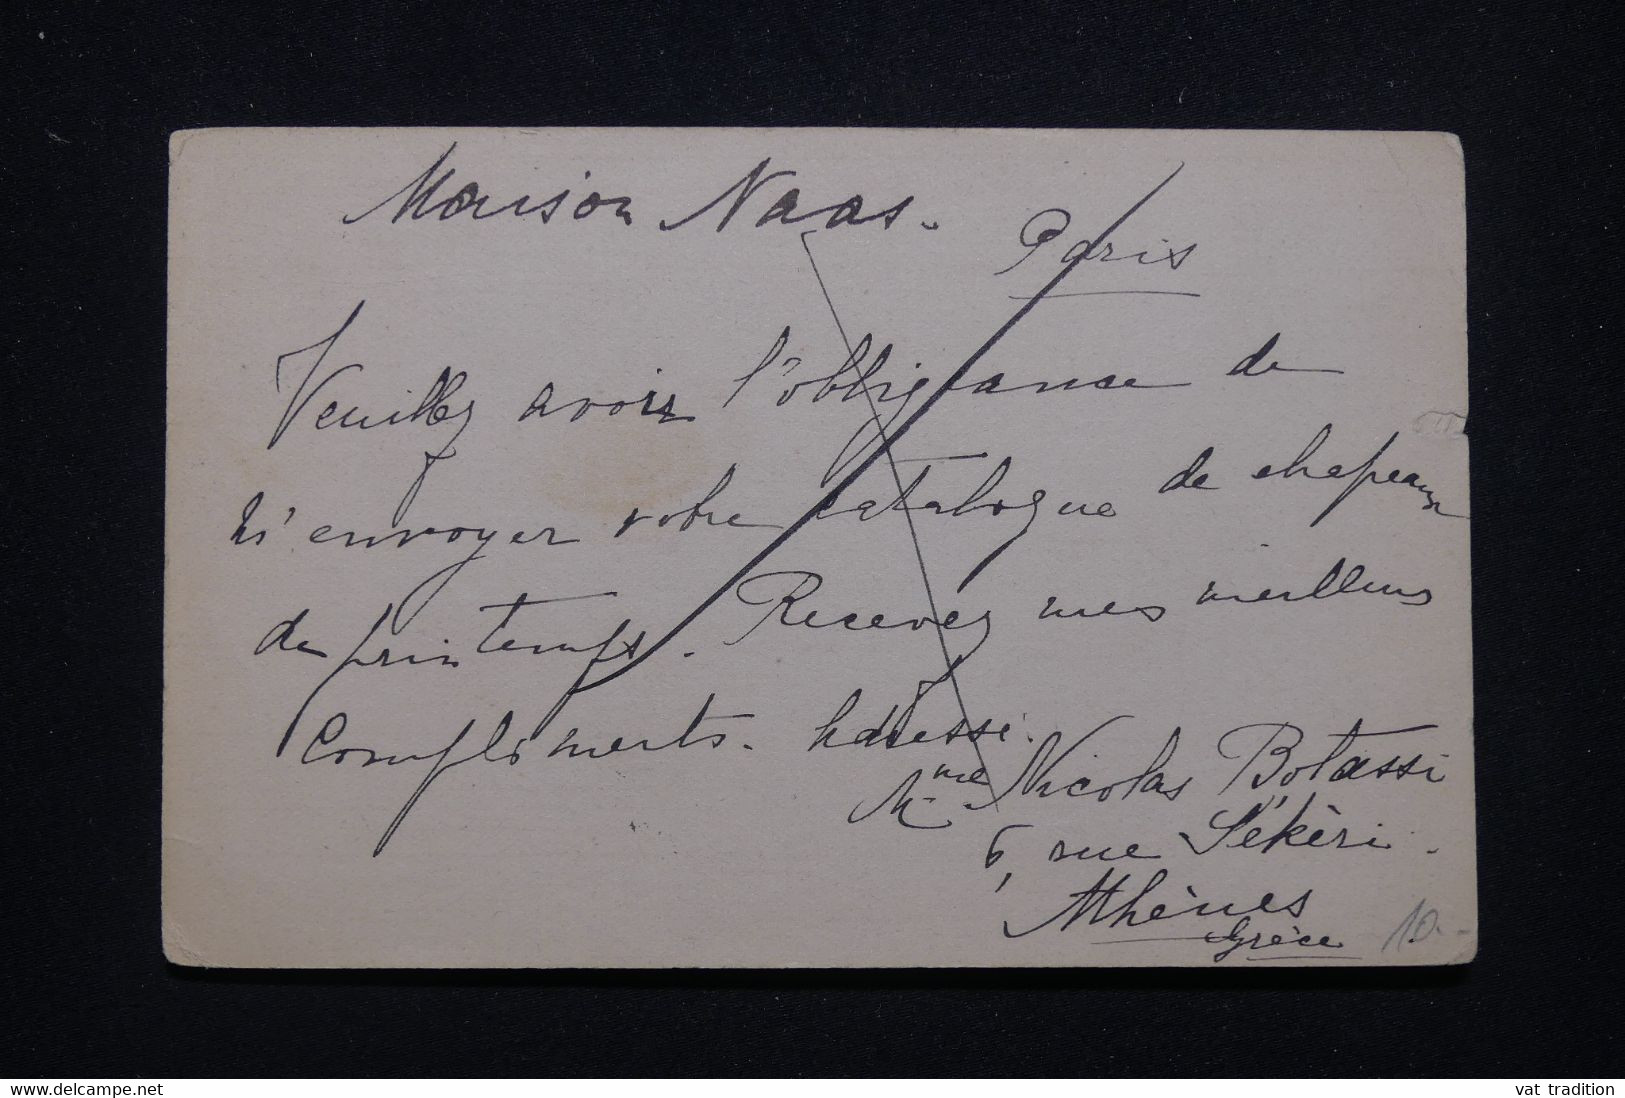 Maison Naas.
Paris
Veuillez avoir l'obligeance de
m'envoyer votre catalogue de chapeaux
de printemps. Recevez mes meilleurs
compliments. Adresse.
Mme Nicolas Botassi
6, rue Sékéri.
Athènes
Grèce
10.-
delcampe.net
vat_tradition